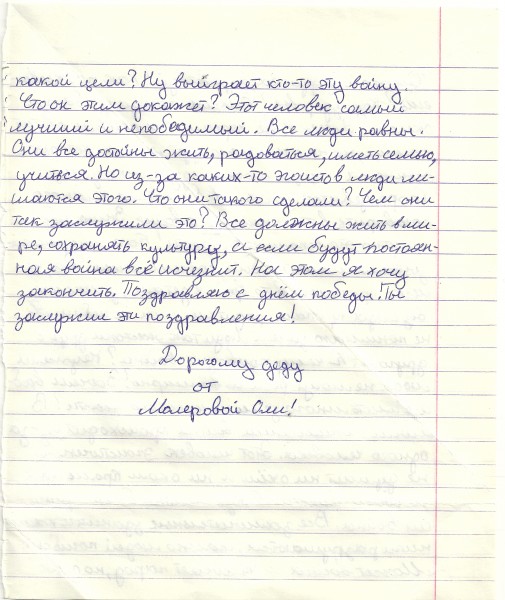 какой цели? Ну выиграет кто-то эту войну.
Что он этим докажет? Этот человек самый
лучший и непобедимый. Все люди равны.
Они все достойны жить, радоваться, иметь семью,
учиться. Но из-за каких-то эгоистов люди ли-
шаются этого. Что они такого сделали? Чем они
так заслужили это? Все должны жить в ми-
ре, сохранять культуру, а если будут постоян-
ная война всё исчезнит. На этом я хочу
закончить. Поздравляю с днём победы! Ты
заслужил эти поздравления!
Дорогому деду
от
Малеровой Оли!